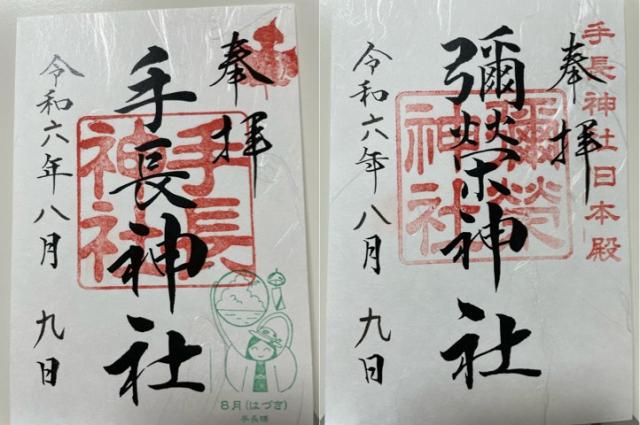 奉拝
手長神社
手長神社
令和六年八月九日
8月(はづき)
手長様
手長神社日本殿
奉拝
彌榮神社
彌榮神社
令和六年八月九日